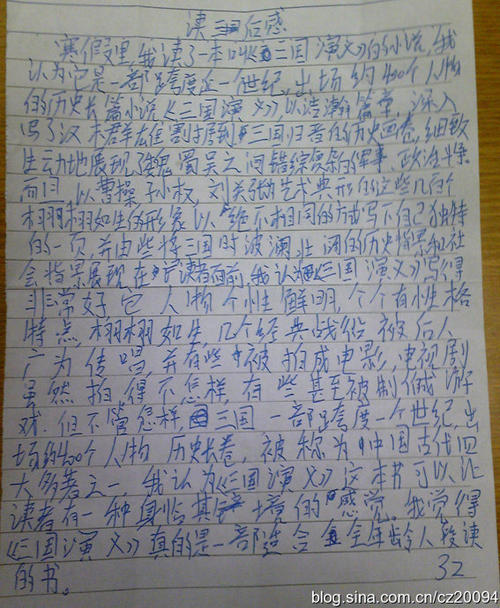 读三国后感
寒假里,我读了一本叫《三国演义》的小说,我
认为它是一部跨度近一世纪,出场约400个人物
的历史长篇小说《三国演义》,以浩瀚篇章,深入
写了汉末群雄割据到三国归晋的历史画卷,细致
生动地展现了魏蜀吴之间错综复杂的军事、政治斗争
而且,以曹操孙权,刘关张艺术典形的这些几百个
栩栩如生的形象以绝不相同的方式写下自己独特
的一页,并由些将三国时波澜壮阔的历史背景和社
会背景展现在读者面前,我认为《三国演义》写得
非常好它人物个性鲜明,个个有性格
特点栩栩如生,几个经典战役被后人
广为传唱,并有些被拍成电影,电视剧
虽然拍得不怎样,有些甚至被制做游
戏.但不管怎样三国一部跨度一个世纪,出
场约400个人物历史长卷,被称为中国古代四
大名著之一,我认为《三国演义》这本书可以让
读者有一种身临其境的感觉,我觉得
《三国演义》真的是一部适合全年龄人段读
的书。
32
blog.sina.com.cn/cz20094